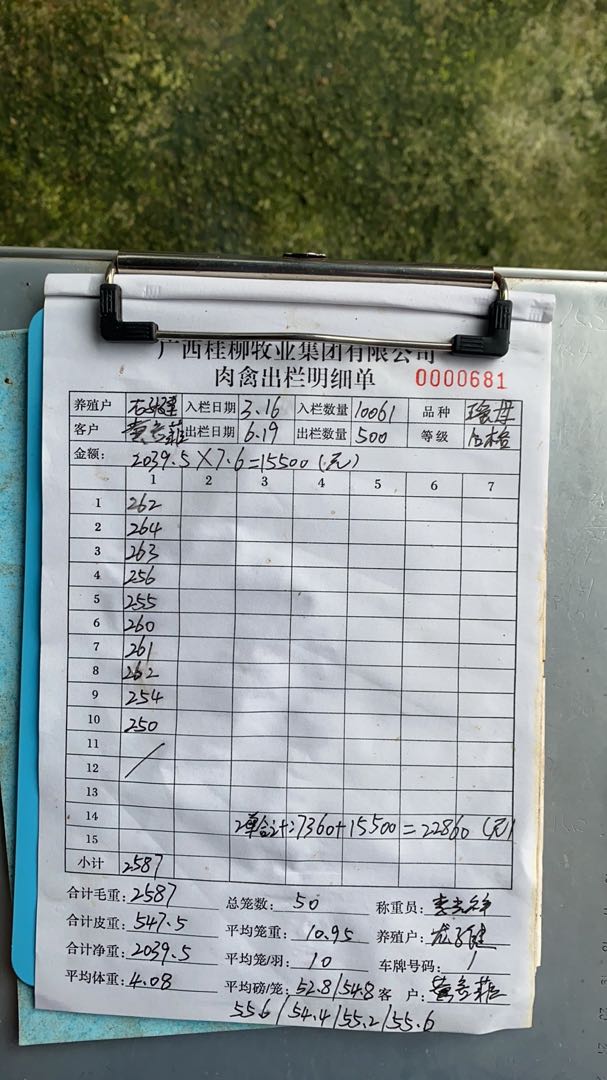 广西桂柳牧业集团有限公司
肉禽出栏明细单 0000681
养殖户 入栏日期 3.16 入栏数量 10061 品种
客户 出栏日期 6.19 出栏数量 500 等级 合格
金额: 2039.5×7.6=15500(元)
1 2 3 4 5 6 7
1 262
2 264
3 263
4 256
5 255
6 260
7 261
8 262
9 254
10 250
11
12
13
14 2单合计:7360+15500=22860(元)
15
小计 2587
合计毛重: 2587 总笼数: 50 称重员:
合计皮重: 547.5 平均笼重: 10.95 养殖户:
合计净重: 2039.5 平均笼/羽: 10 车牌号码: /
平均体重: 4.08 平均磅/笼: 52.8/54.8 客 户:
55.6/54.4/55.2/55.6